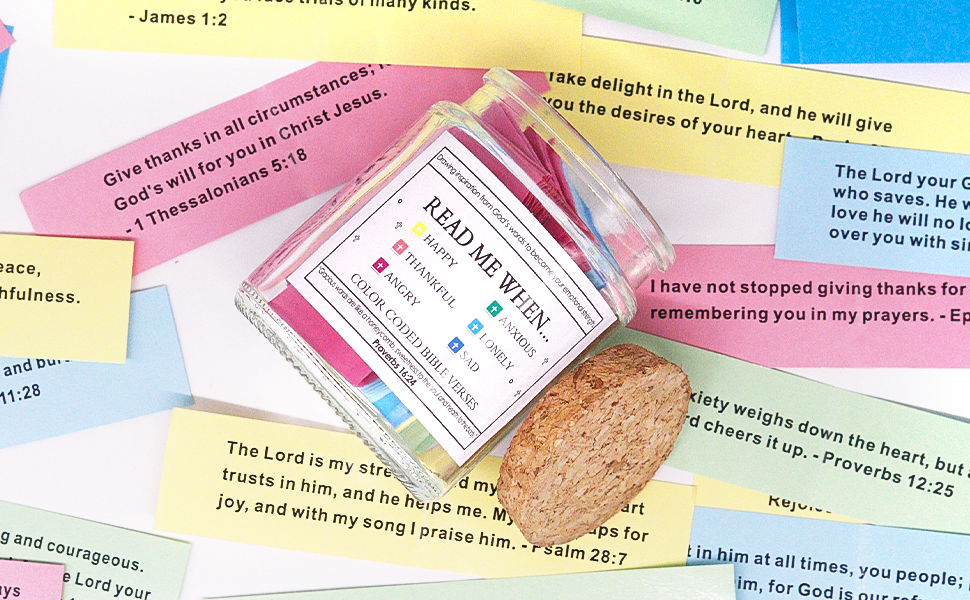 of many kinds.
- James 1:2
Give thanks in all circumstances;
God's will for you in Christ Jesus.
- 1 Thessalonians 5:18
Take delight in the Lord, and he will give
you the desires of your heart.
The Lord your G
who saves. He w
love he will no lo
over you with sin
I have not stopped giving thanks for
remembering you in my prayers. - Ep
eace,
hfulness.
and bur
11:28
Drawing inspiration from God's words to become your emotional strength
READ ME WHEN...
HAPPY
THANKFUL
ANGRY
ANXIOUS
LONELY
SAD
COLOR CODED BIBLE VERSES
Gracious words are like a honeycomb, sweetness to the soul and health to the body.
Proverbs 16:24
xiety weighs down the heart, but
rd cheers it up. - Proverbs 12:25
The Lord is my stre d my art
trusts in him, and he helps me. My aps for
joy, and with my song I praise him. - Psalm 28:7
Rejoice
t in him at all times, you people;
im, for God is our ref
g and courageous.
e Lord your
ays